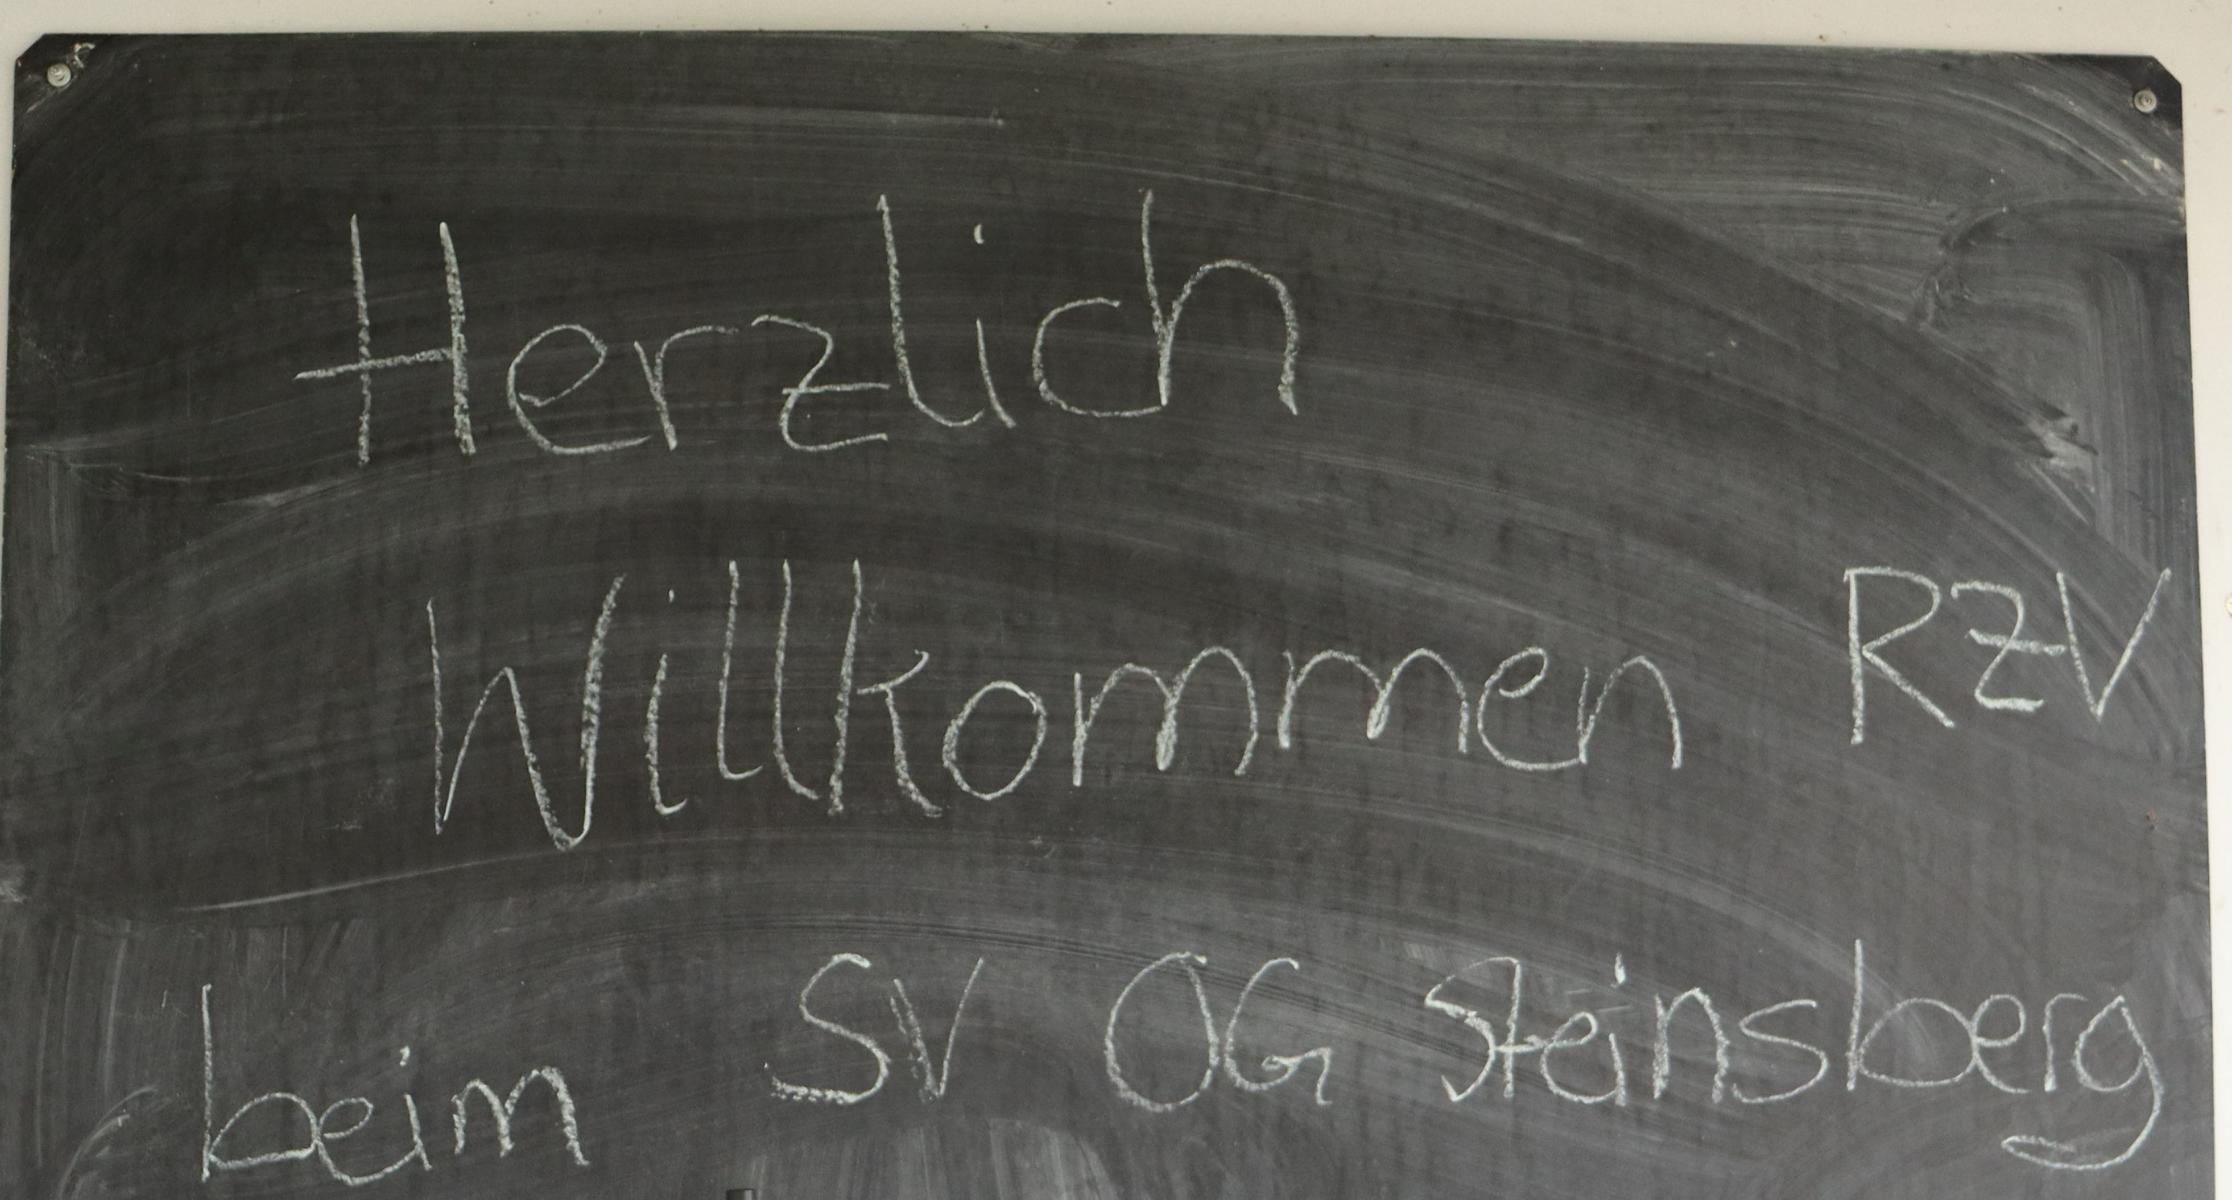 Herzlich
Willkommen RZV
beim SV OG Steinsberg